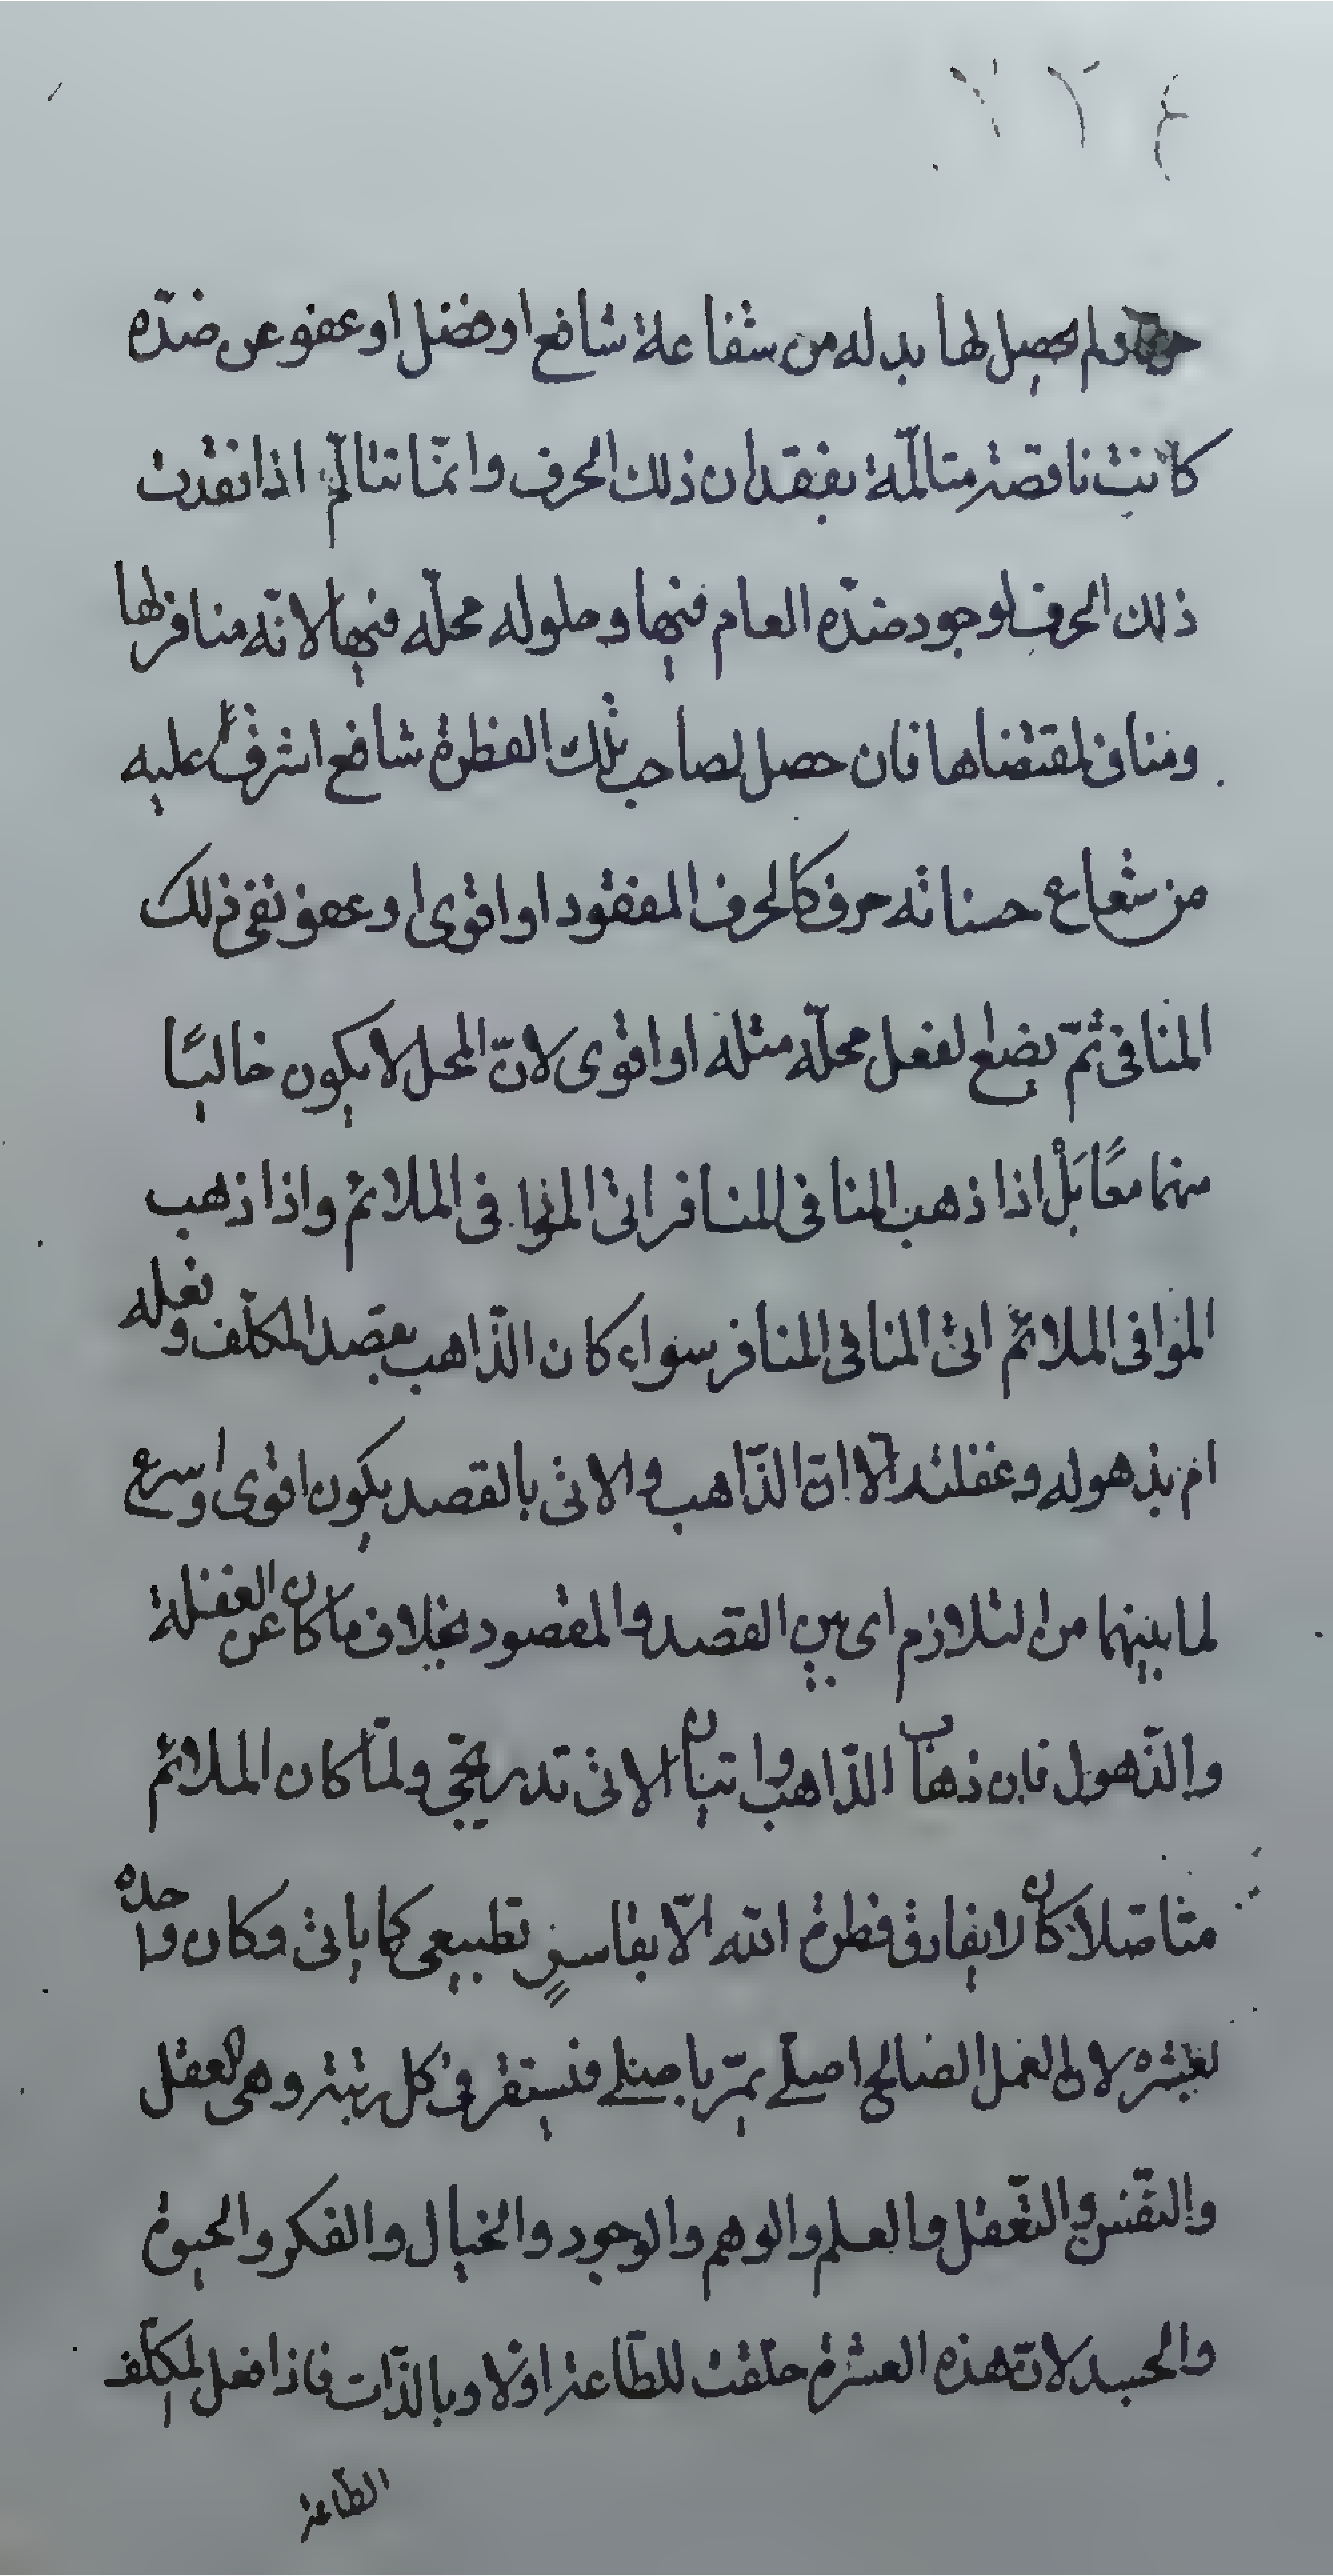 ولم يحصل لها بدله من شفاعة شافع او فضل او عفو عن ضدّه
كانت ناقصة متالمّة بفقدان ذلك الحرف وانمّا تتالمّ اذا فقدت
ذلك الحرف لوجود ضدّه العام فيها وحلوله محلّه فيها لانّه منافر لها
ومناف لمقتضاها فان حصل لصاحب تلك الفطرة شافع اشرف عليه
من شعاع حسناته حرف كالحرف المفقود او اقوى او عفو نفى ذلك
المنافى ثمّ يضع لفعل محلّه مثله او اقوى لانّ المحل لا يكون خاليًا
منهما معًا بَلْ اذا ذهب المنافى المنافر اتى الموافى الملائم واذا ذهب
الموافى الملائم اتى المنافى المنافر سواء كان الذّاهب بقصد المكلّف وفعله
ام بذهوله وغفلته الا انّ الذّاهب والاتى بالقصد يكون اقوى واسرع
لما بينهما من التلازم اى بين القصد والمقصود بخلاف ما كان عن الغفلة
والذّهول فان ذهاب الذّاهب واتيان الاتى تدريجى ولمّا كان الملائم
متاصّلا كان لا يفارق فطرة الله الّا بقاسرٍ تطبيعى كما ياتى وكان واحده
بعشره لان العمل الصالح اصلى يمرّ باصلى فيستقر فى كل رتبة وهى العقل
والنّفس والتّعقل والعلم والوهم والوجود والخيال والفكر والحيوة
والجسد لانّ هذه العشرة خلقت للطّاعة اوّلا وبالذّات فاذا فعل المكلّف
الطّاعة